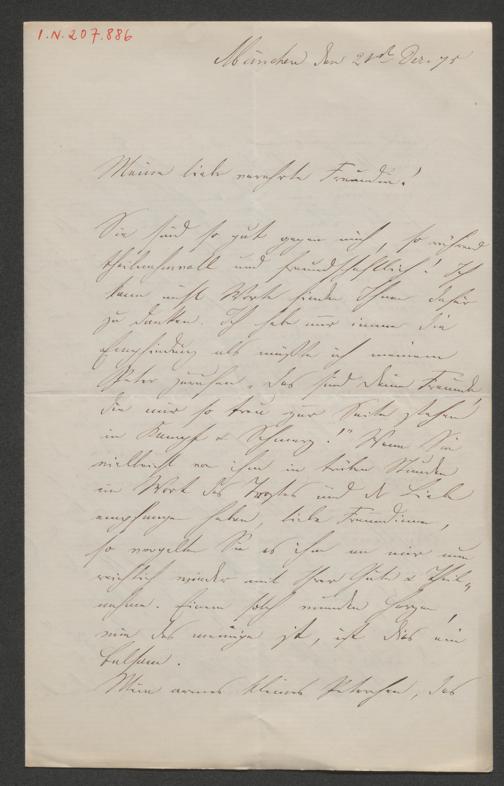 I.N. 207.886
München den 21t Dez. 75
Meine liebe verehrte Freundin!
Sie sind so gut gegen mich, so rührend
theilnahmvoll und freundschaftlich! Ich
kann nicht Worte finden Ihnen dafür
zu danken. Ich habe nur immer die
Empfindung als müßte ich meinem
Peter zurufen „das sind Deine Freunde
die mir so treu zur Seite stehen
in Kampf & Schmerz!" Wenn Sie
vielleicht von ihm in trüben Stunden
ein Wort des Trostes und der Liebe
empfangen haben, liebe Freundinn,
so vergelten Sie es ihm an mir nun
reichlich wieder mit Ihrer Güte & Theil-
nahme. Einem solch wunden Herzen,
wie das meinige ist, ist dies ein
Balsam.
Mein armes kleines Peterchen, das